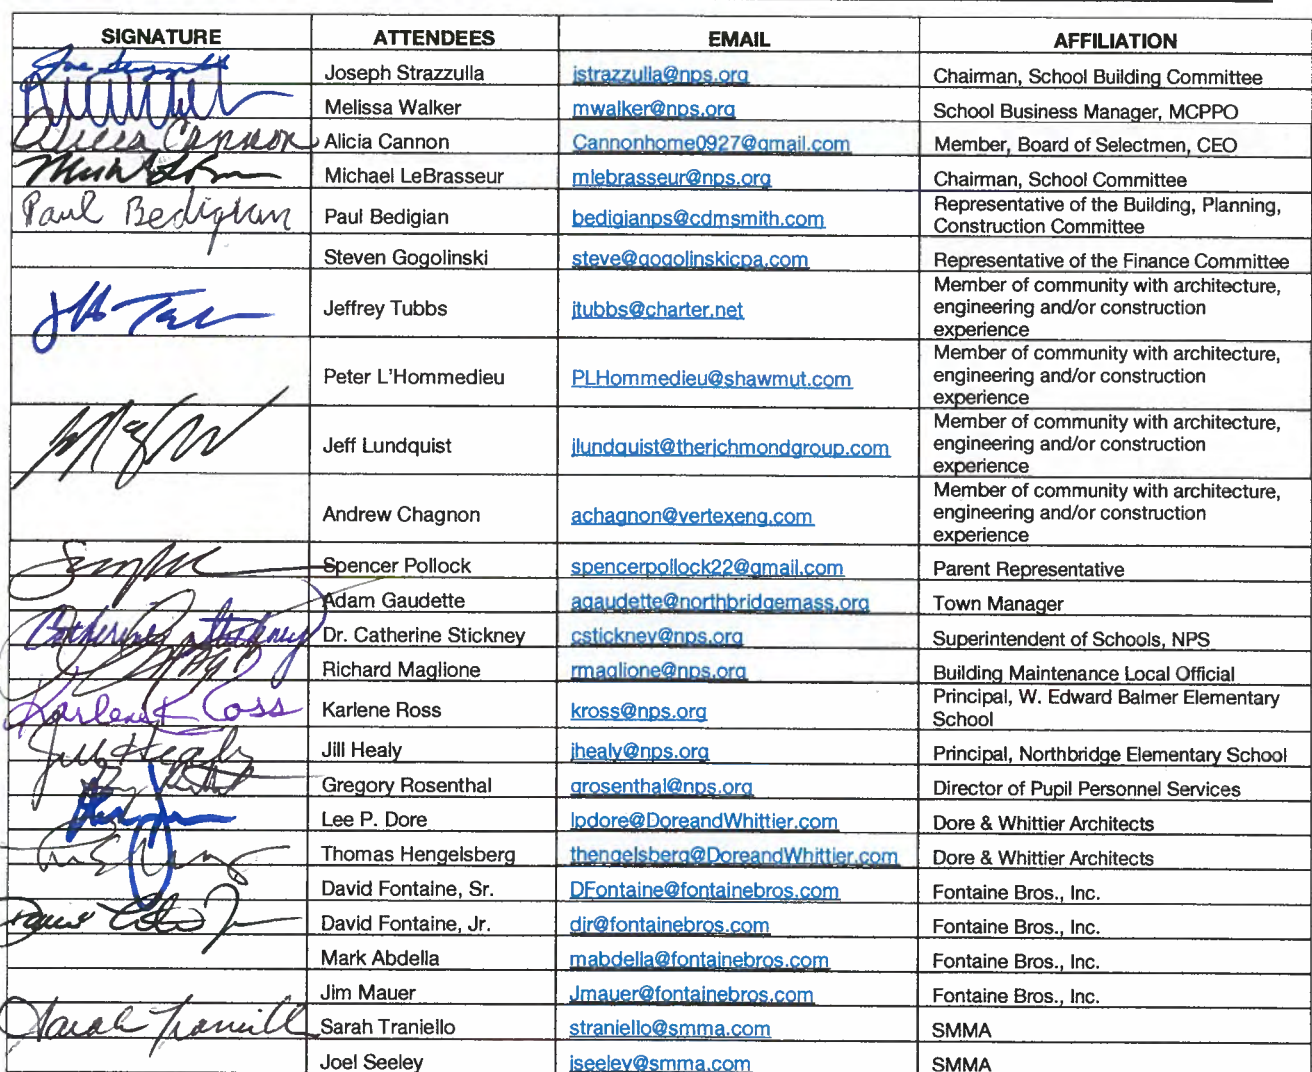 SIGNATURE ATTENDEES EMAIL AFFILIATION
Joseph Strazzulla jstrazzulla@nps.org Chairman, School Building Committee
Melissa Walker mwalker@nps.org School Business Manager, MCPPO
Alicia Cannon Alicia Cannon Cannonhome0927@gmail.com Member, Board of Selectmen, CEO
Michael LeBrasseur mlebrasseur@nps.org Chairman, School Committee
Paul Bedigian Paul Bedigian bedigianps@cdmsmith.com Representative of the Building, Planning,
Construction Committee
Steven Gogolinski steve@gogolinskicpa.com Representative of the Finance Committee
Jeffrey Tubbs jtubbs@charter.net Member of community with architecture,
engineering and/or construction
experience
Peter L'Hommedieu PLHommedieu@shawmut.com Member of community with architecture,
engineering and/or construction
experience
Jeff Lundquist jlundquist@therichmondgroup.com Member of community with architecture,
engineering and/or construction
experience
Andrew Chagnon achagnon@vertexeng.com Member of community with architecture,
engineering and/or construction
experience
Spencer Pollock spencerpollock22@gmail.com Parent Representative
Adam Gaudette agaudette@northbridgemass.org Town Manager
Catherine Stickney Dr. Catherine Stickney cstickney@nps.org Superintendent of Schools, NPS
Richard Maglione rmaglione@nps.org Building Maintenance Local Official
Karlene K Ross Karlene Ross kross@nps.org Principal, W. Edward Balmer Elementary
School
Jill Healy Jill Healy jhealy@nps.org Principal, Northbridge Elementary School
Gregory Rosenthal grosenthal@nps.org Director of Pupil Personnel Services
Lee P. Dore lpdore@DoreandWhittier.com Dore & Whittier Architects
Thomas Hengelsberg thengelsberg@DoreandWhittier.com Dore & Whittier Architects
David Fontaine, Sr. DFontaine@fontainebros.com Fontaine Bros., Inc.
David Fontaine, Jr. djr@fontainebros.com Fontaine Bros., Inc.
Mark Abdella mabdella@fontainebros.com Fontaine Bros., Inc.
Jim Mauer Jmauer@fontainebros.com Fontaine Bros., Inc.
Sarah Traniello Sarah Traniello straniello@smma.com SMMA
Joel Seeley jseeley@smma.com SMMA